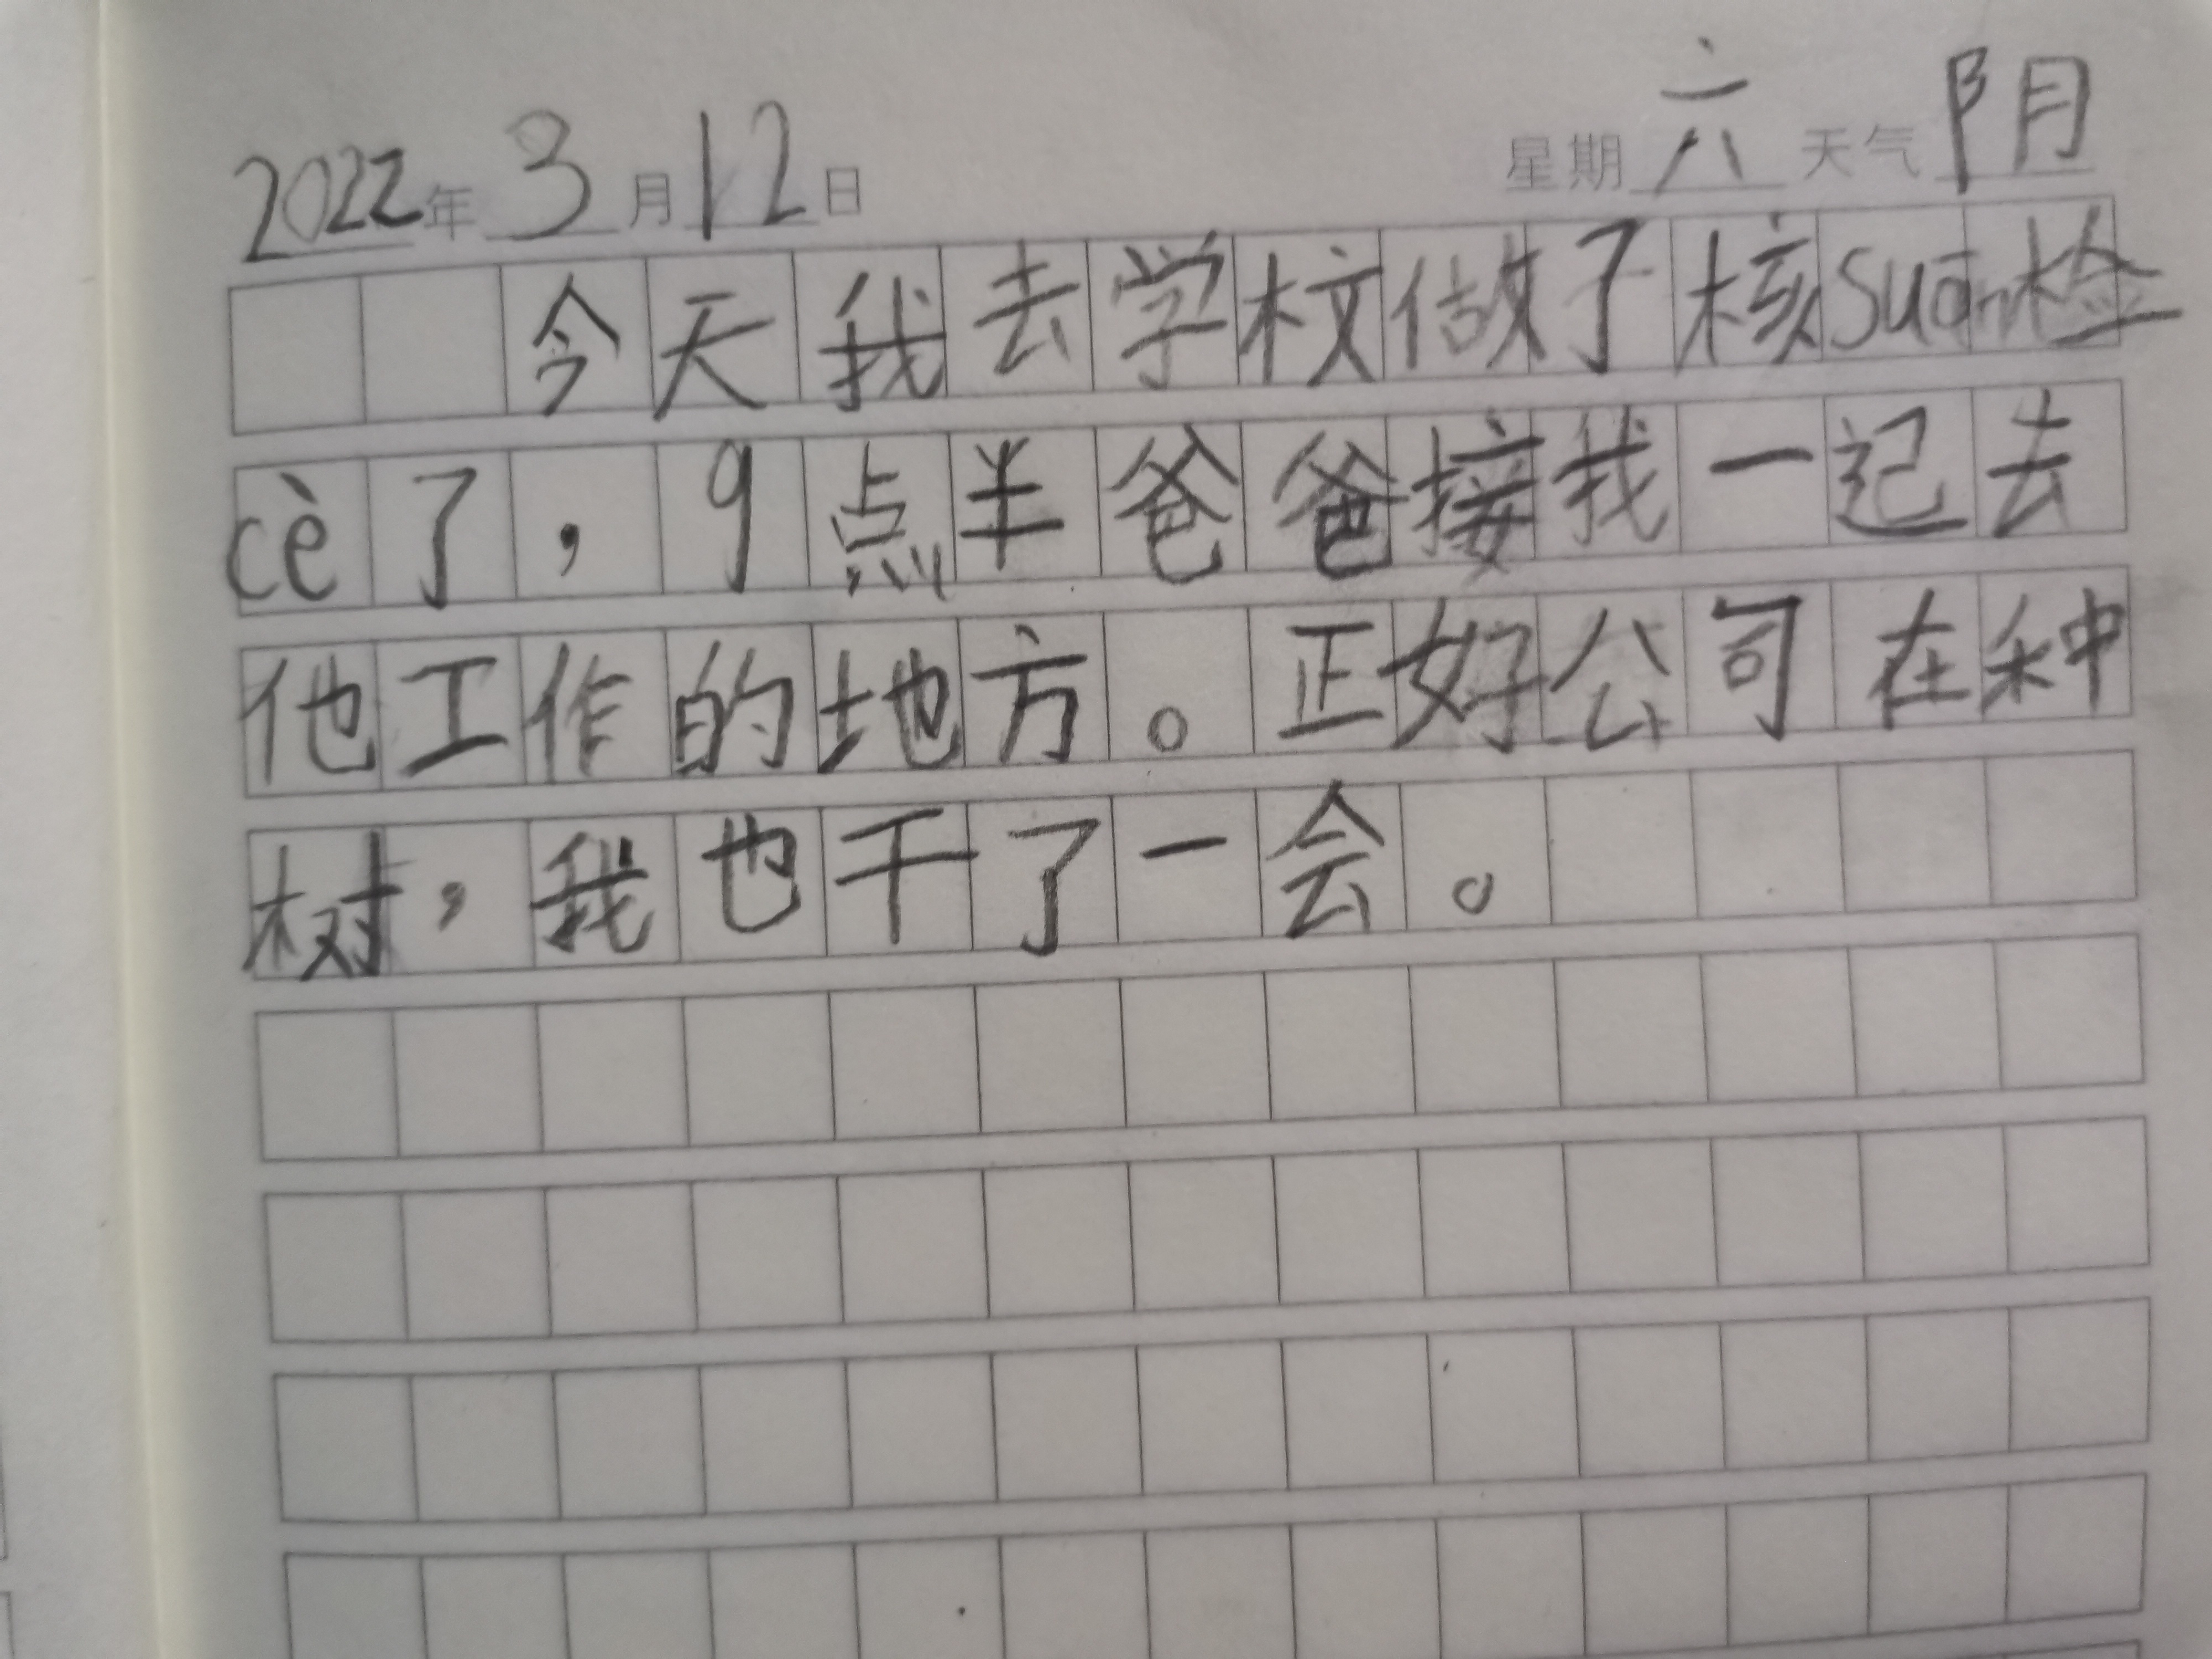 2022年3月12日 星期六 天气阴
今天我去学校做了核suān检
cè了，9点半爸爸接我一起去
他工作的地方。正好公司在种
树，我也干了一会。